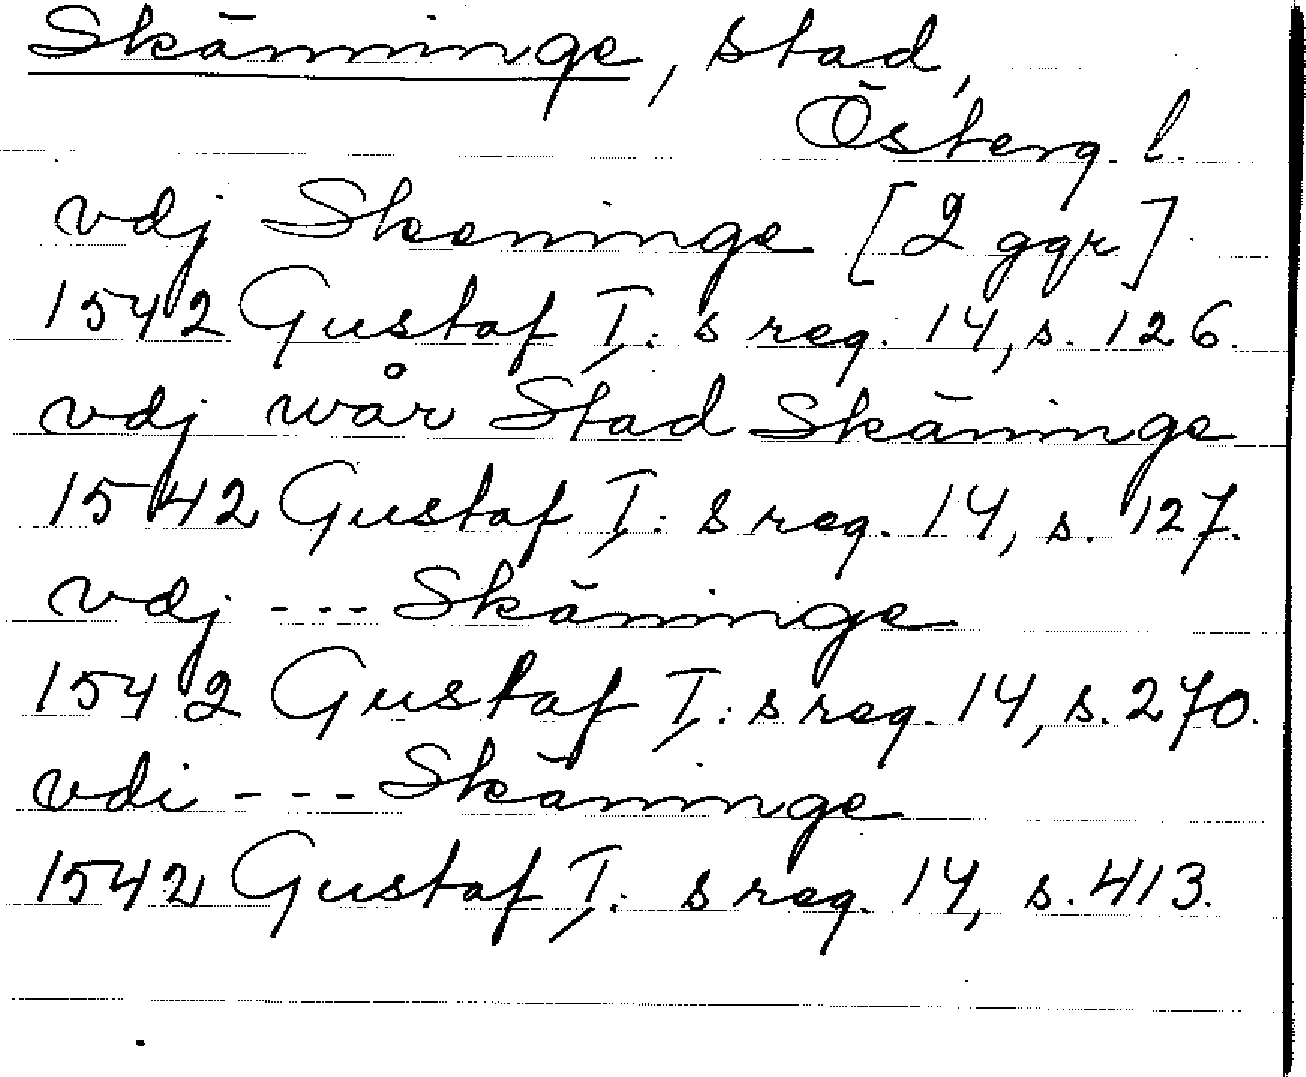 Skänninge, stad,
Österg. l.
vdj Skeninge [2 ggr]
1542 Gustaf I: s reg. 14, s. 126.
vdj wår Stad Skäninge
1542 Gustaf I: s reg. 14, s. 127.
vdj --- Skäninge
1542 Gustaf I: s reg. 14, s. 270.
vdi --- Skäninge
1542 Gustaf I: s reg. 14, s. 413.